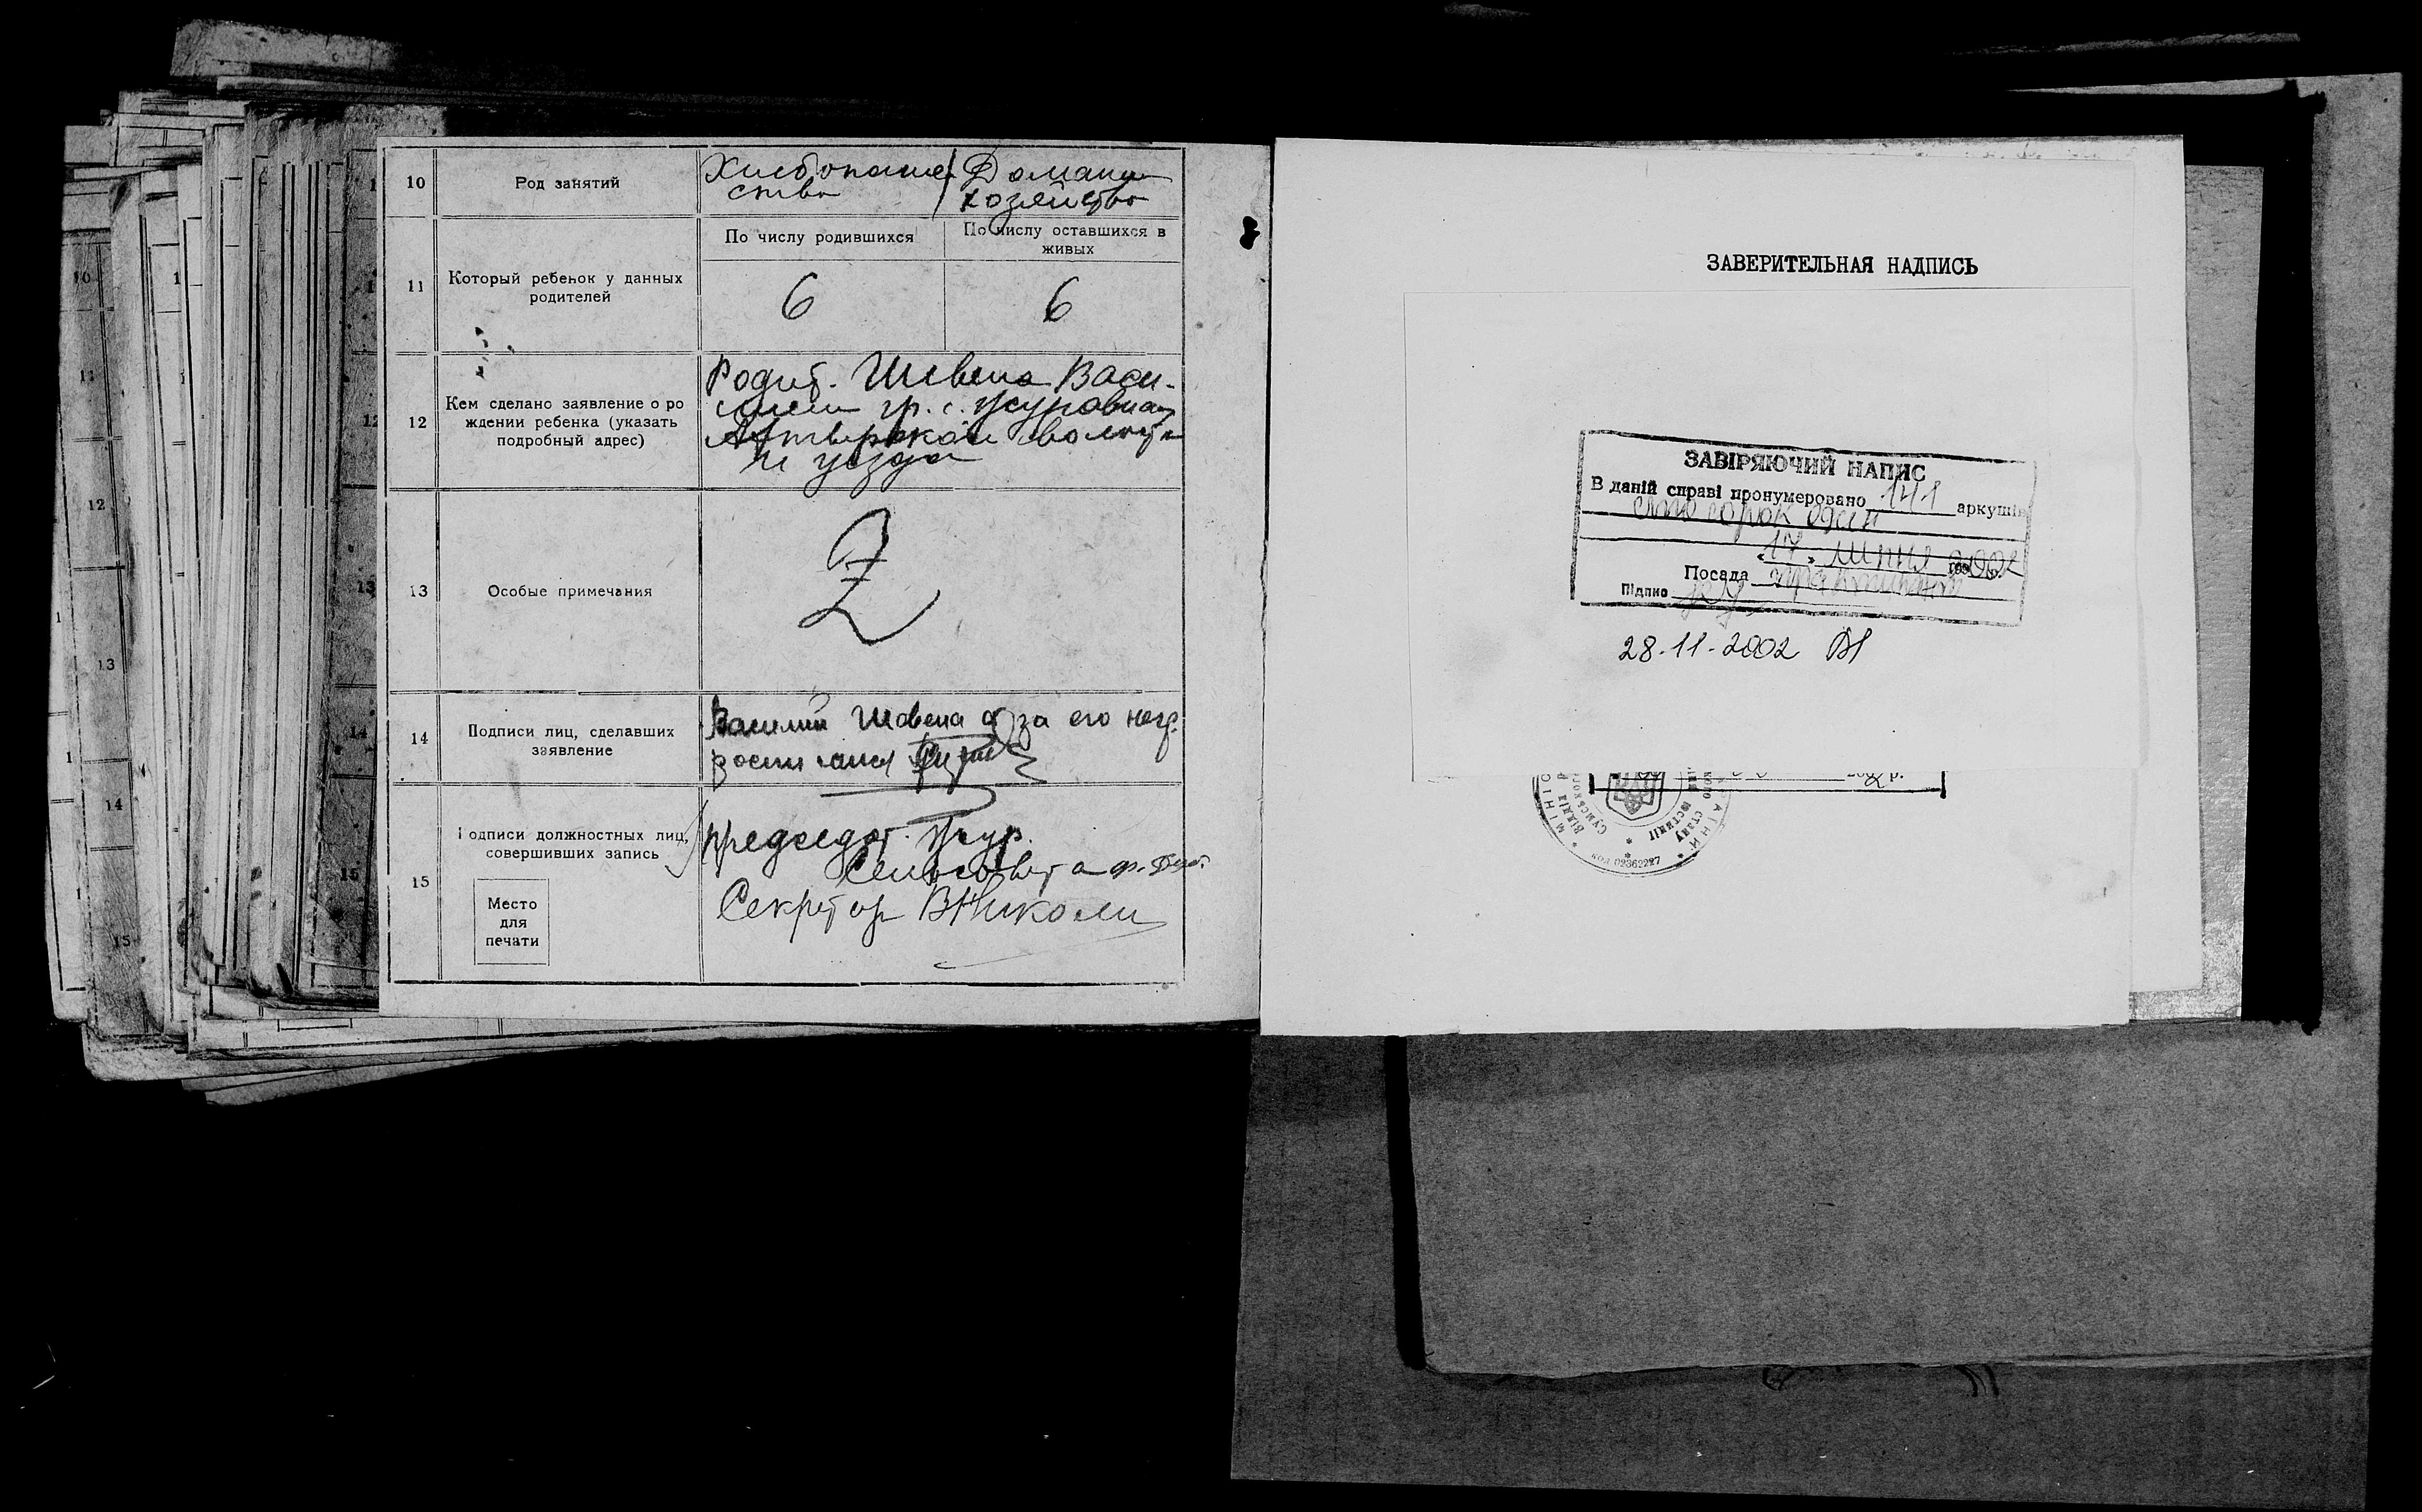 10
Род занятий
Хлебопаше
ство
Домашн
хозяйство
11
Который ребенок у данных
родителей
По числу родившихся
По числу оставшихся в
живых
6
6
12
Кем сделано заявление о ро
ждении ребенка (указать
подробный адрес)
Родит. Шевена Васи-
лием гр. с. Журавна
Ахтырской волост
и уезда
13
Особые примечания
Z
14
Подписи лиц, сделавших
заявление
Василий Шевена а за его негр.
росписался
15
Подписи должностных лиц,
совершивших запись
Место
для
печати
Председат. Жур.
Сельсовета
Секретар
ЗАВЕРИТЕЛЬНАЯ НАДПИСЬ
ЗАВІРЯЮЧИЙ НАПИС
В даній справі пронумеровано 141 аркушів
сто сорок один
"17" липня 2002
Посада
Підпис
28.11-2002
2002 р.
код 02362227